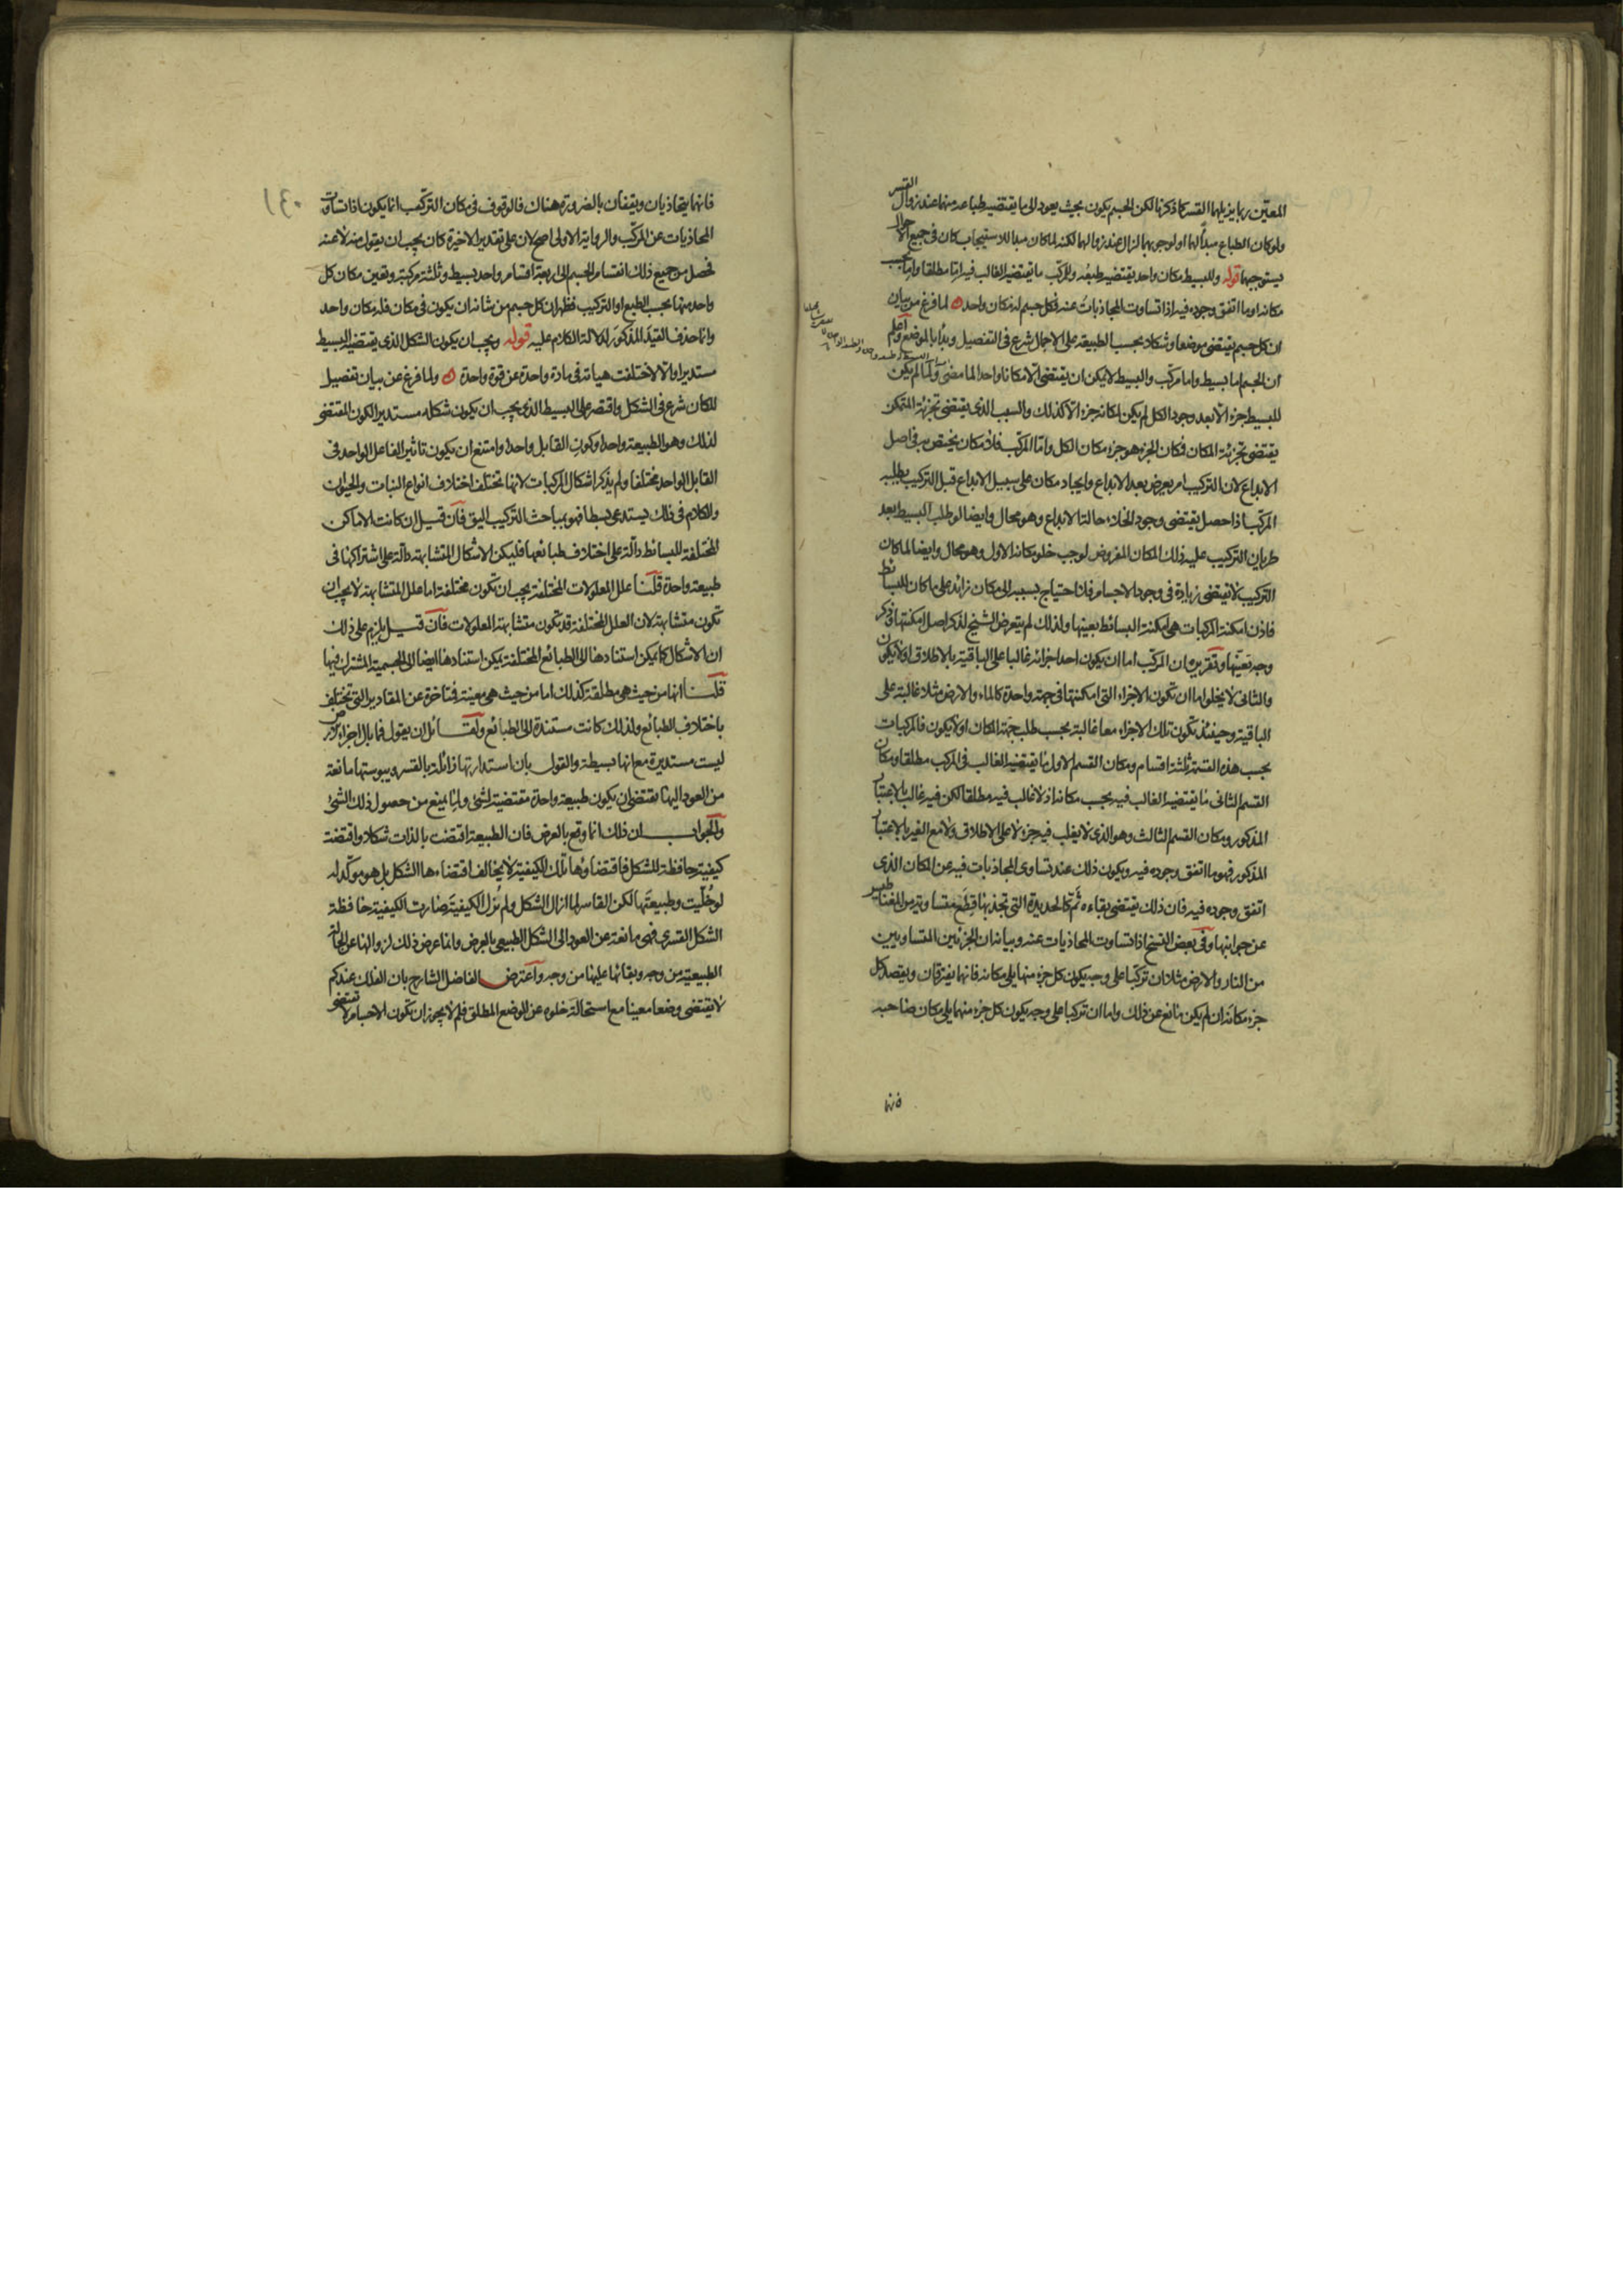 المعيّن ربما يزيلهما القسر كما ذكرنا لكن الجسم يكون بحيث يعود الى ما يقتضيه طباعه منهما عند زوال القسر
ولو كان الطباع مبدأ لهما او لوجوبهما لزال عند زوالهما لكنه لما كان مبدا للاستيجاب كان فى جميع الاحوال
يستوجبهما قوله وللبسيط مكان واحد يقتضيه طبعه وللمركب ما يقتضيه الغالب فيه اما مطلقا واما بحسب
مكانه او ما اتفق وجوده فيه اذا تساوت المجاذبات عنه فكل جسم له مكان واحد ه لما فرغ من بيان
ان كل جسم يقتضى موضعا وشكلا بحسب الطبيعة على الاجمال شرع فى التفصيل وبدأ بالموضع واعلم
ان الجسم اما بسيط واما مركب والبسيط لا يمكن ان يقتضى الا مكانا واحدا لما مضى ولما لم يكن
للبسيط جزء الا بعد وجود الكل لم يكن لمكانه جزء الا كذلك والسبب الذى يقتضى تجزئة المتمكن
يقتضى تجزئة المكان فمكان الجزء هو جزء مكان الكل واما المركب فلا مكان يختص به فى اصل
الابداع لان التركيب امر يعرض بعد الابداع وايجاد مكان على سبيل الابداع قبل التركيب يطلبه
المركب اذا حصل يقتضى وجود الخلاء حالة الابداع وهو محال وايضا لو طلب البسيط بعد
طريان التركيب عليه ذلك المكان المفروض لوجب خلو مكانه الاول وهو محال وايضا لما كان
التركيب لا يقتضى زيادة فى وجود الاجسام فلا احتياج بسببه الى مكان زائد على ما كان للبسائط
فاذن امكنة المركبات هى امكنة البسائط بعينها ولذلك لم يتعرض الشيخ لذكر اصل امكنتها وذكر
وجه تعينها وتقريره ان المركب اما ان يكون احد اجزائه غالبا على الباقية بالاطلاق او لا يكون
والثانى لا يخلو اما ان تكون الاجزاء التى امكنتها فى جهة واحدة كالماء والارض مثلا غالبة على
الباقية وحينئذ تكون تلك الاجزاء معا غالبة بحسب طلب جهة المكان او لا يكون فالمركبات
بحسب هذه القسمة ثلثة اقسام ومكان القسم الاول ما يقتضيه الغالب فى المركب مطلقا ومكان
القسم الثانى ما يقتضيه الغالب فيه بحسب مكانه اذ لا غالب فيه مطلقا لكن فيه غالب بالاعتبار
المذكور ومكان القسم الثالث وهو الذى لا يغلب فيه جزء لا على الاطلاق ولا مع الغير بالاعتبار
المذكور فهو ما اتفق وجوده فيه ويكون ذلك عند تساوى المجاذبات فيه عن المكان الذى
اتفق وجوده فيه فان ذلك يقتضى بقاءه ثمّ كالحديدة التى تجذبها قطع متساوية من المغناطيس
عن جوانبها وفى بعض النسخ اذا تساوت المجاذبات عنه وبيانه ان الجزئين المتساويين
من النار والارض مثلا ان تركبا على وجه يكون كل جزء منهما يلى مكانه فانهما يفترقان ويقصد كل
جزء مكانه ان لم يكن مانع عن ذلك واما ان تركبا على وجه يكون كل جزء منهما يلى مكان صاحبه
فانهما
فانهما يتجاذبان ويقفان بالضرورة هناك فالوقوف فى مكان التركيب انما يكون اذا تساوت
المجاذبات عن المركب والرواية الاولى اصح لان على تقدير الاخيرة كان يجب ان يقول منه لا عنه
فحصل من جميع ذلك انقسام الجسم الى اربعة اقسام واحد بسيط وثلثة مركبة وتعين مكان كل
واحد منها بحسب الطبع او التركيب فظهر ان كل جسم من شانه ان يكون فى مكان فله مكان واحد
وانما حذف القيد المذكور لدلالة الكلام عليه قوله ويجب ان يكون الشكل الذى يقتضيه البسيط
مستديرا والا لاختلفت هيأته فى مادة واحدة عن قوة واحدة ه ولما فرغ عن بيان تفصيل
المكان شرع فى الشكل واقتصر على البسيط الذى يجب ان يكون شكله مستديرا لكون المقتضى
لذلك وهو الطبيعة واحدا وكون القابل واحدا وامتنع ان يكون تاثير الفاعل الواحد فى
القابل الواحد مختلفا ولم يذكر اشكال المركبات لانها تختلف اختلاف انواع النبات والحيوان
والكلام فى ذلك يستدعى بسطا فهو بمباحث التركيب اليق فان قيل ان كانت الاماكن
المختلفة للبسائط دالة على اختلاف طبائعها فليكن الاشكال المتشابهة دالة على اشتراكها فى
طبيعة واحدة قلنا علل المعلولات المختلفة يجب ان تكون مختلفة اما علل المتشابهة لا يجب ان
تكون متشابهة لان العلل المختلفة قد تكون متشابهة المعلولات فان قيل يلزم على ذلك
ان الاشكال كما يمكن استنادها الى الطبائع المختلفة يمكن استنادها ايضا الى الجسمية المشترك فيها
قلنا انها من حيث هى مطلقة كذلك اما من حيث هى معينة فمتاخرة عن المقادير التى تختلف
باختلاف الطبائع ولذلك كانت مستندة الى الطبائع ولقائل ان يقول فما بال اجزاء الارض
ليست مستديرة مع انها بسيطة والقول بان استدارتها زائلة بالقسر ويبوستها مانعة
من العود اليها يقتضى ان يكون طبيعة واحدة مقتضية لشئ ولما يمنع من حصول ذلك الشئ
والجواب ان ذلك انما وقع بالعرض فان الطبيعة اقتضت بالذات شكلا واقتضت
كيفية حافظة للشكل فاقتضاؤها تلك الكيفية لا يخالف اقتضاءها الشكل بل هو موكّد له
لو خُلّيت وطبيعتها لكن القاسر لما ازال الشكل ولم يُزل الكيفية صارت الكيفية حافظة
الشكل القسرى فهى مانعة عن العود الى الشكل الطبيعى بالعرض وانما عرض ذلك لزوالها عن الحالة
الطبيعية من وجه وبقائها عليها من وجه واعترض الفاضل الشارح بان الفلك عندكم
لا يقتضى وضعا معينا مع استحالة خلوه عن الوضع المطلق فلم لا يجوز ان تكون الاجسام لا تقتضى